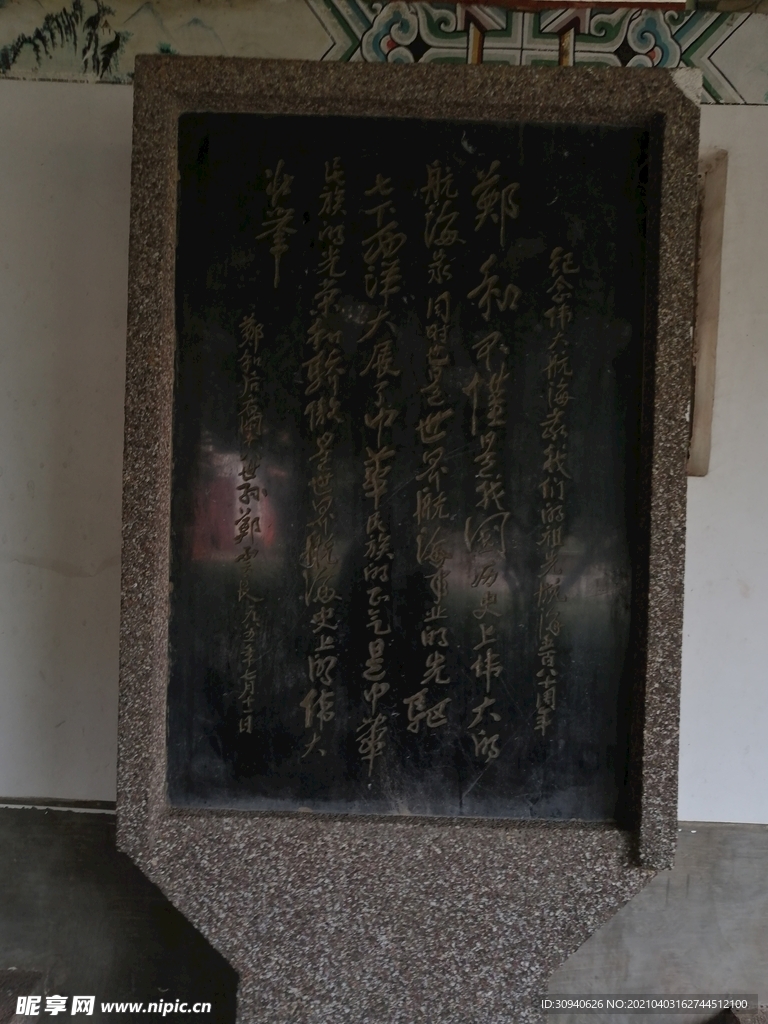 纪念伟大航海家我们的祖先航海五百八十周年
郑和不仅是我国历史上伟大的
航海家同时也是世界航海事业的先驱
七下西洋大展了中华民族的正气是中华
民族的光荣和骄傲是世界航海史上的伟大
壮举
郑和后裔 世孙郑 一九八五年七月十一日
昵享网 www.nipic.cn
ID:30940626 NO:20210403162744512100